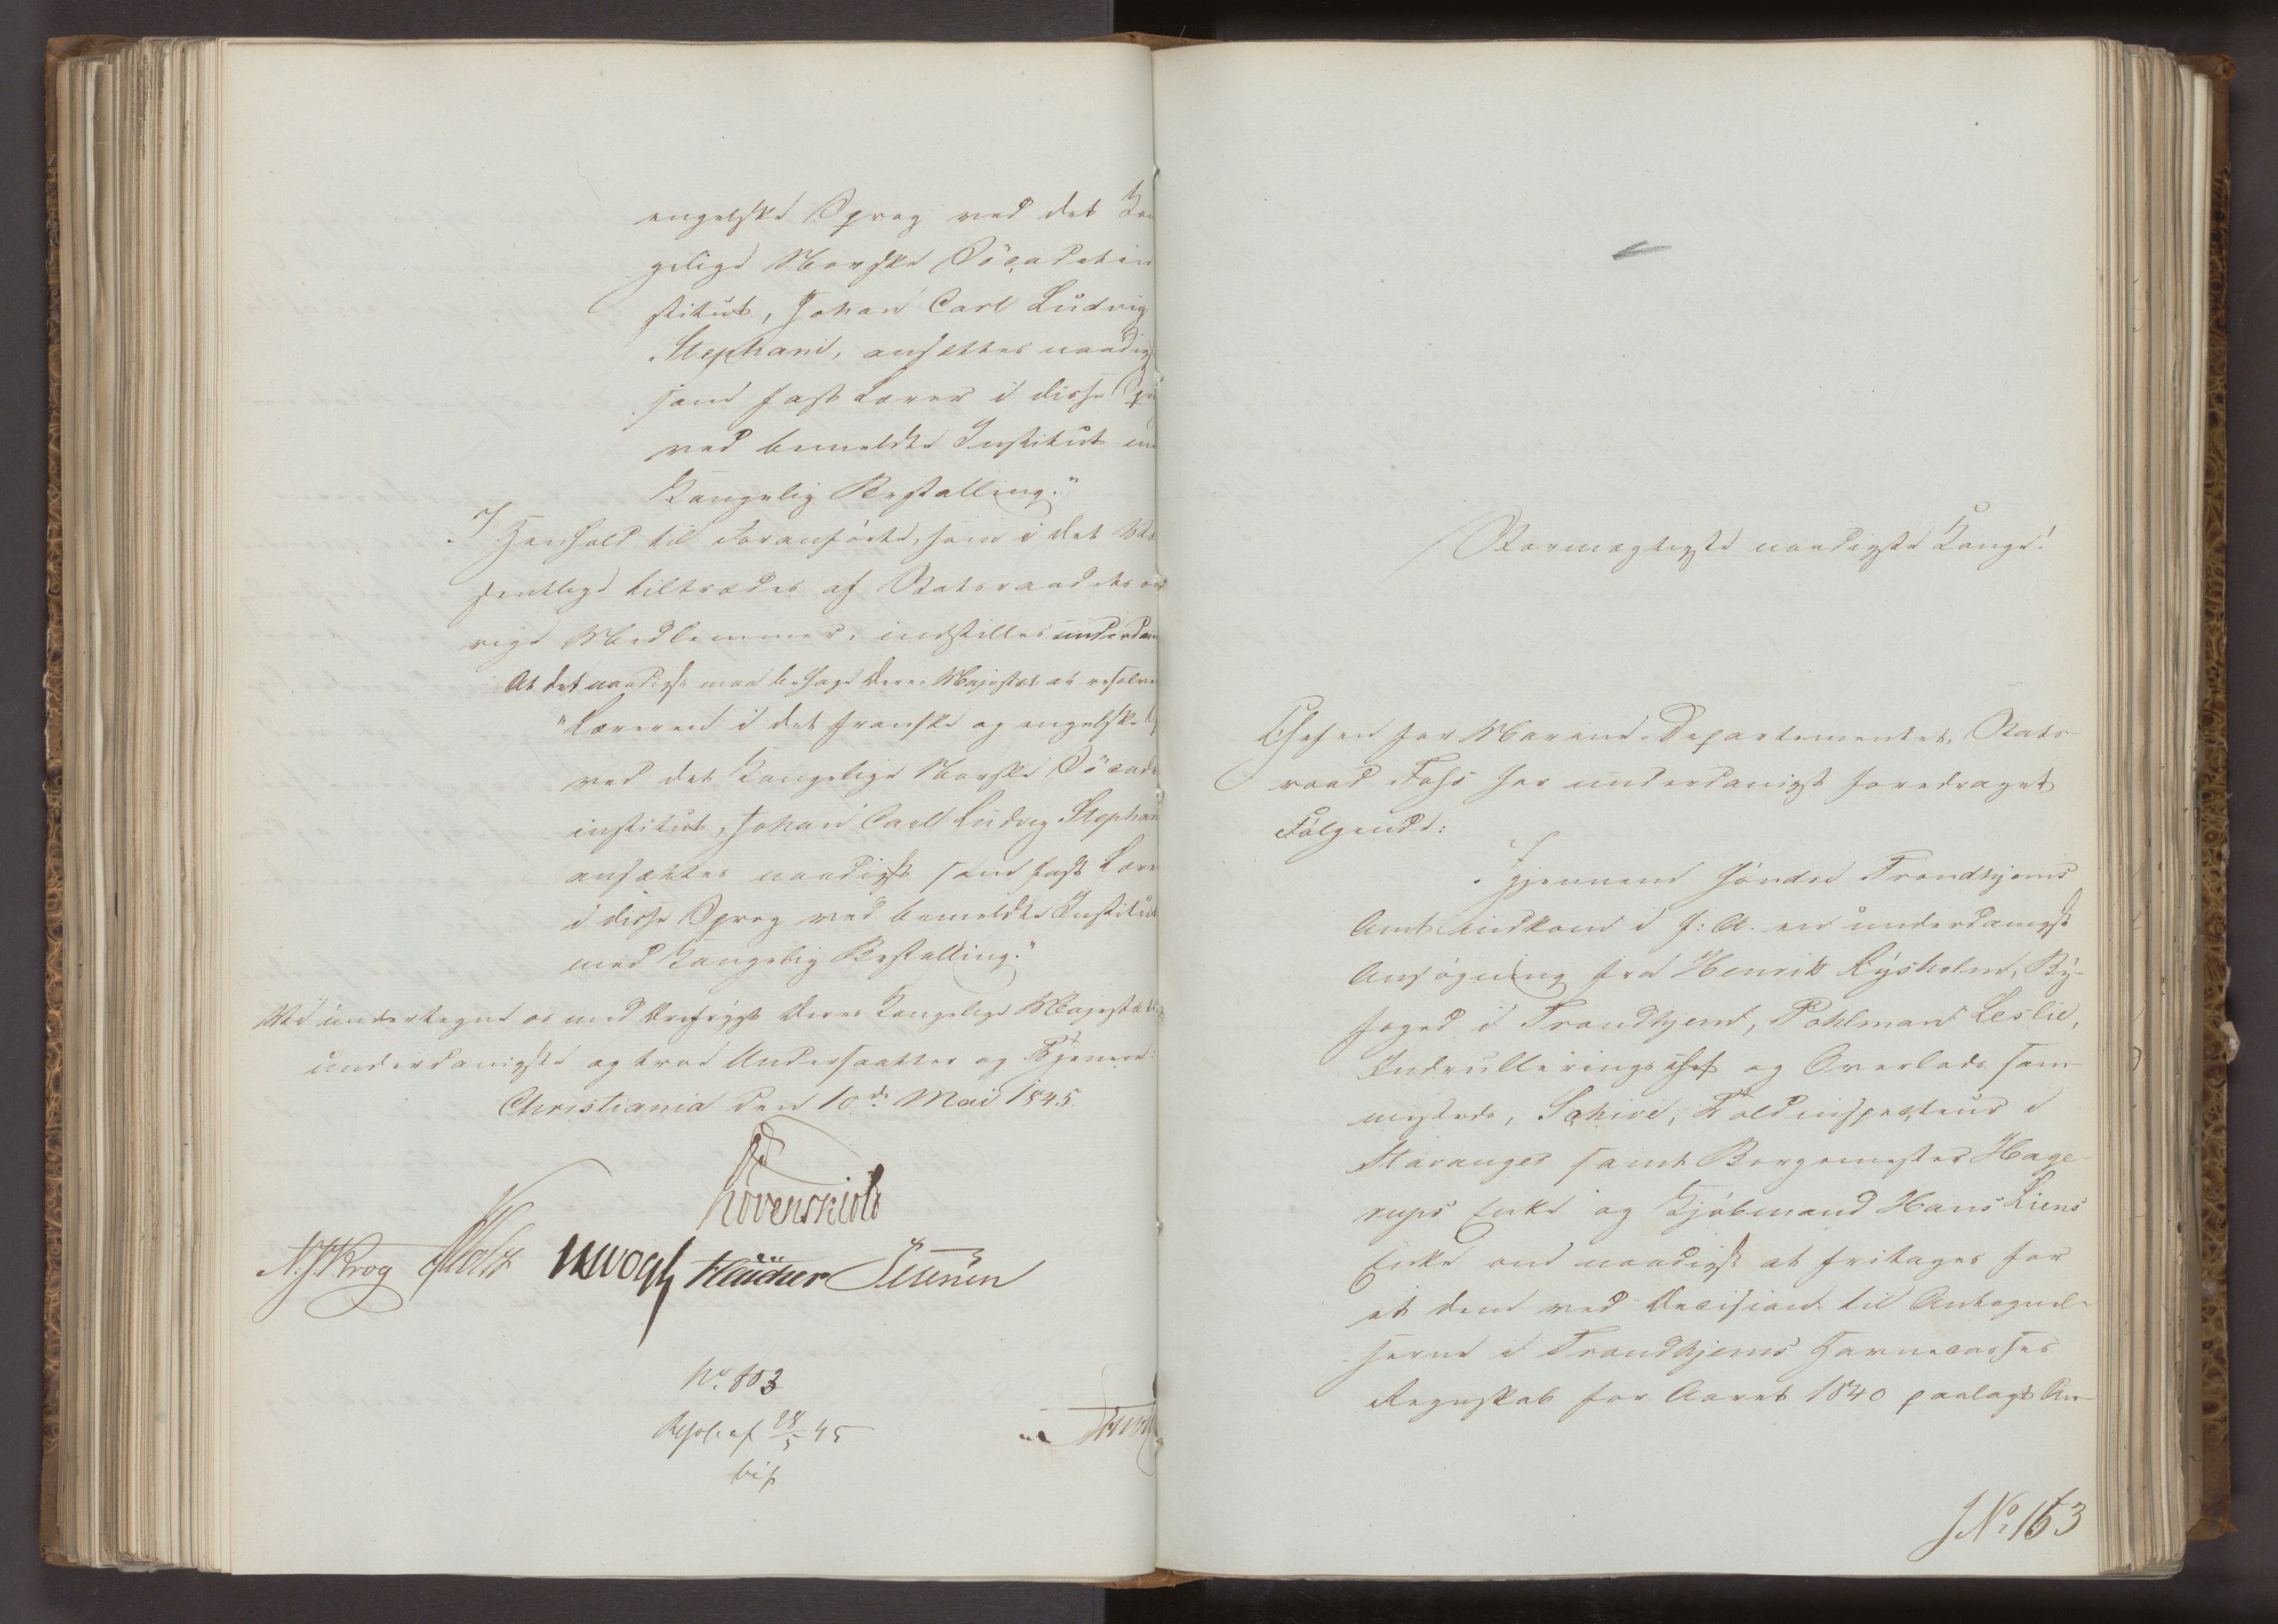 engelske Sprog ved det Kon
gelige Norske Söcadetin
stitut, Johan Carl Ludvig
Stephani, ansættes naadigst
som fast Lærer i disse Spr
ved bemeldte Institut me
Kongelig Bestalling."
I Henhold til Foranførte, som i det Væ
sentlige tiltrædes af Statsraadets øv
rige Medlemmer, indstilles underdan
At det naadigst maa behage Deres Majestæt at resolve
"Læreren i det franske og engelske
ved det Kongelige Norske Söcade
institut, Johan Carl Ludvig Stephan
ansættes naadigst som fast Lære
i disse Sprog ved bemeldte Institut
med Kongelig Bestalling."
Vi undertegne os med Ærefrygt Deres Kongelige Majestæts
underdanigste og troe Undersaatter og Tjenere:
Christiania den 10de Mai 1845.
Løvenskiold
N. J. Krog Holst Vogt Fleischer Sibbern
No. 803
Resol. af 28/5 45
bif
Stormægtigste naadigste Konge!
Chefen for Marine-Departementet, Stats-
raad Fasting har underdanigst foredraget
Følgende:
Igjennem Søndre Trondhjems
Amt indkom i f: A. en underdanigst
Ansøgning fra Henrik Rysholm, By-
foged i Trondhjem, Pohlman Leslie,
Indrulleringschef og Overlods sam-
mesteds, Schive, Toldinspecteur i
Stavanger samt Borgemester Hage-
rups Enke og Kjøbmand Hans Liens
Enke om naadigst at fritages for
et dem ved Decision til Antegnel-
serne i Trondhjems Havnecasses
Regnskab for Aaret 1840 paalagt An-
JNo. 163